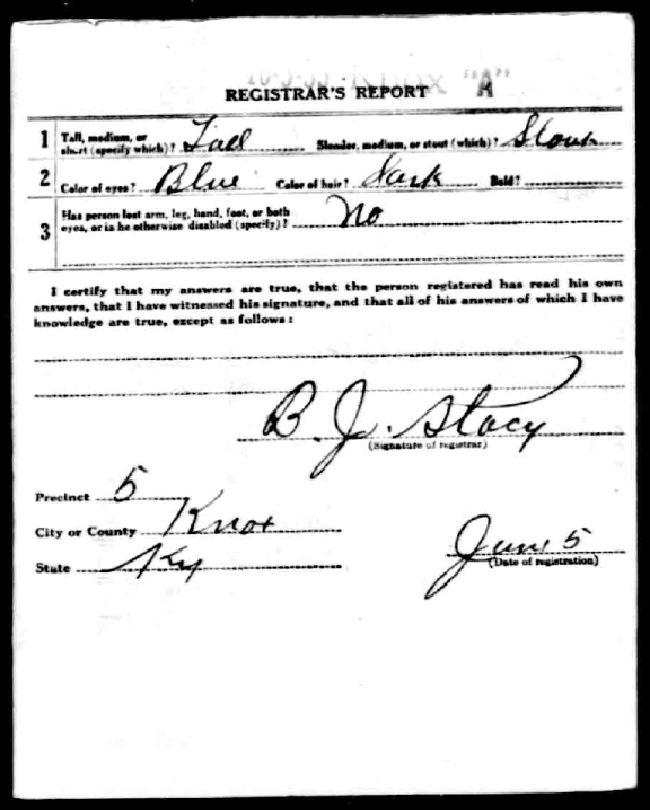 REGISTRAR'S REPORT "A"
1 Tall, medium, or short (specify which)? Tall Slender, medium, or stout (which)? Stout
2 Color of eyes? Blue Color of hair? Dark Bald?
3 Has person lost arm, leg, hand, foot, or both eyes, or is he otherwise disabled (specify)? No
I certify that my answers are true, that the person registered has read his own
answers, that I have witnessed his signature, and that all of his answers of which I have
knowledge are true, except as follows:
B. J. Stacy
(Signature of registrar)
Precinct 5
City or County Knox
State Ky
June 5
(Date of registration)